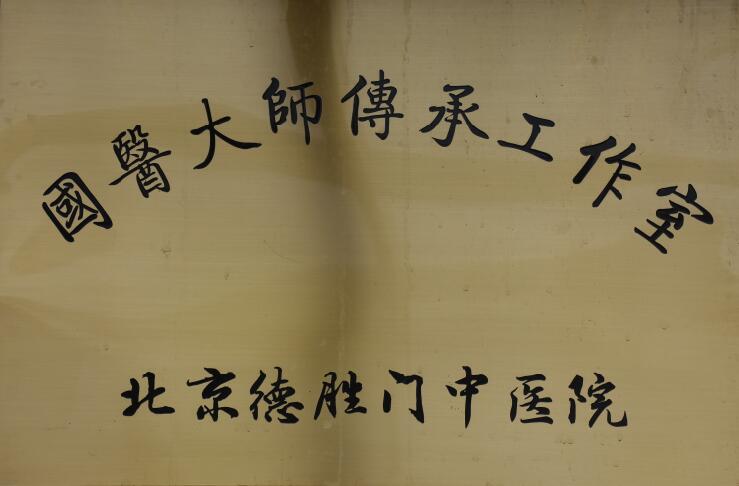 國醫大師傳承工作室
北京德胜门中医院